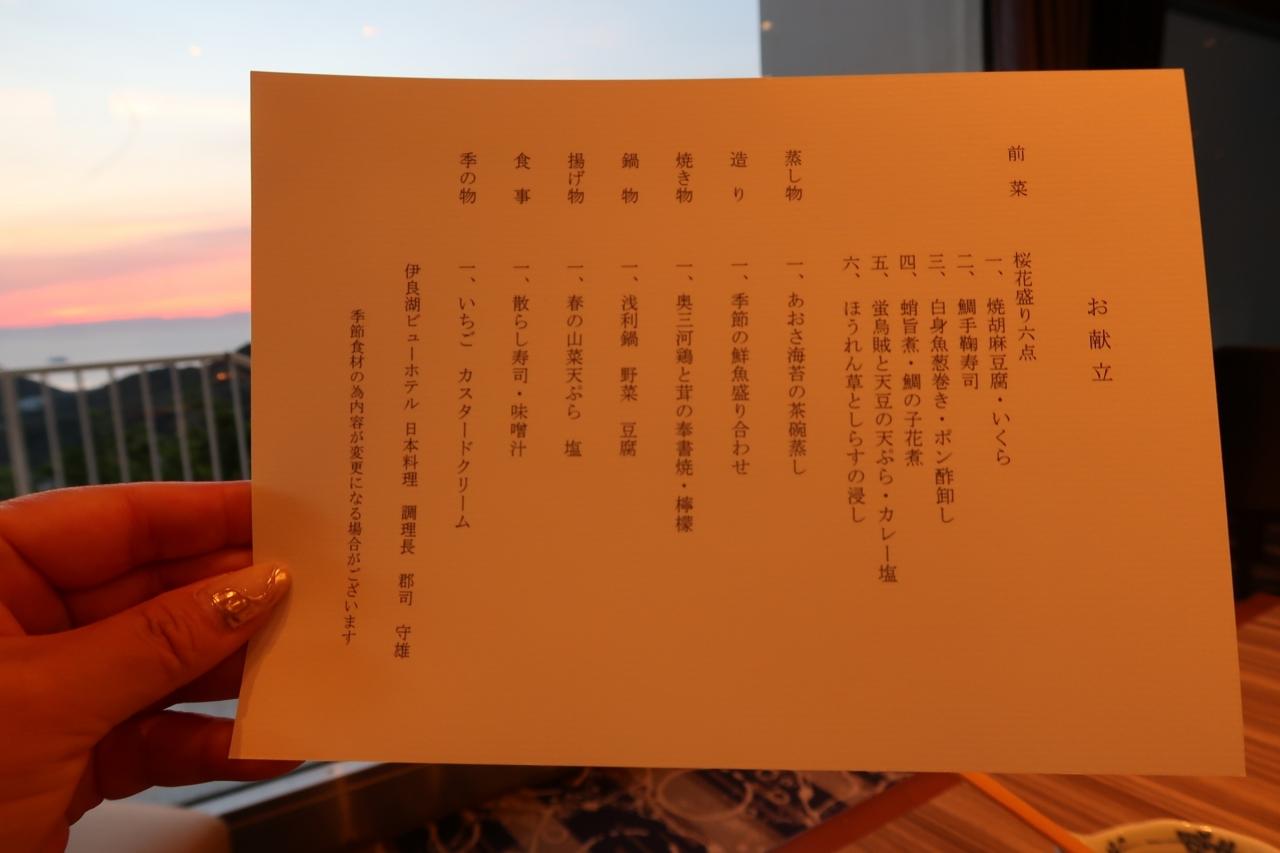 お献立
前菜 桜花盛り六点
一、焼胡麻豆腐・いくら
二、鯛手鞠寿司
三、白身魚葱巻き・ポン酢卸し
四、蛸旨煮・鯛の子花煮
五、蛍烏賊と天豆の天ぷら・カレー塩
六、ほうれん草としらすの浸し
蒸し物 一、あおさ海苔の茶碗蒸し
造り 一、季節の鮮魚盛り合わせ
焼き物 一、奥三河鶏と茸の奉書焼・檸檬
鍋物 一、浅利鍋 野菜 豆腐
揚げ物 一、春の山菜天ぷら 塩
食事 一、散らし寿司・味噌汁
季の物 一、いちご カスタードクリーム
伊良湖ビューホテル 日本料理 調理長 郡司 守雄
季節食材の為内容が変更になる場合がございます